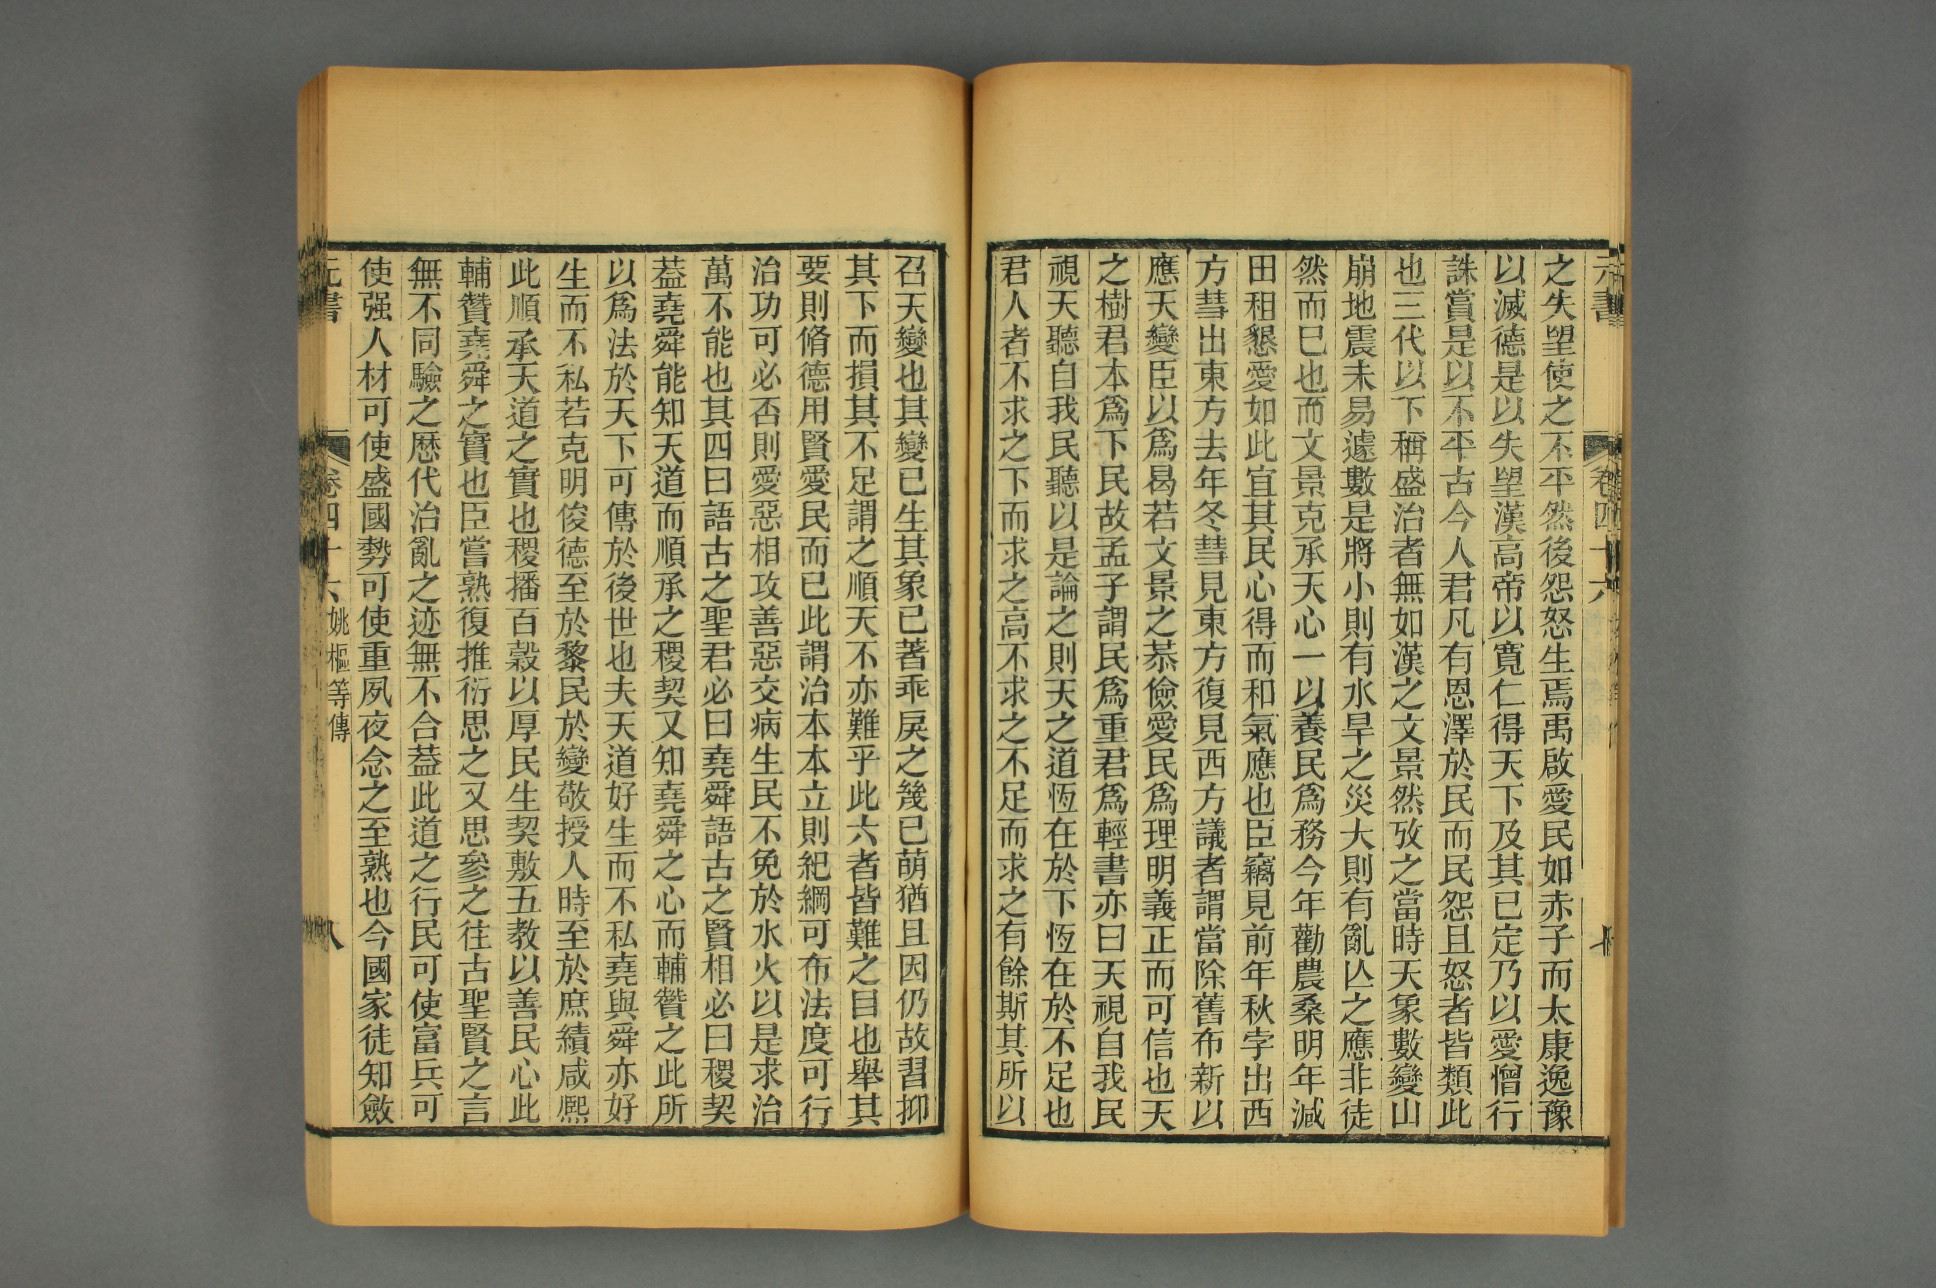 元書
卷四十六
七
之失望使之不平然後怨怒生焉禹啟愛民如赤子而太康逸豫
以滅德是以失望漢高帝以寬仁得天下及其已定乃以愛憎行
誅賞是以不平古今人君凡有恩澤於民而民怨且怒者皆類此
也三代以下稱盛治者無如漢之文景然攷之當時天象數變山
崩地震未易遽數是將小則有水旱之災大則有亂亾之應非徒
然而巳也而文景克承天心一以養民爲務今年勸農桑明年減
田租懇愛如此宜其民心得而和氣應也臣竊見前年秋孛出西
方彗出東方去年冬彗見東方復見西方議者謂當除舊布新以
應天變臣以爲曷若文景之恭儉愛民爲理明義正而可信也天
之樹君本爲下民故孟子謂民爲重君爲輕書亦曰天視自我民
視天聽自我民聽以是論之則天之道恆在於下恆在於不足也
君人者不求之下而求之高不求之不足而求之有餘斯其所以
召天變也其變已生其象已著乖戾之幾已萌猶且因仍故習抑
其下而損其不足謂之順天不亦難乎此六者皆難之目也舉其
要則脩德用賢愛民而已此謂治本本立則紀綱可布法度可行
治功可必否則愛惡相攻善惡交病生民不免於水火以是求治
萬不能也其四曰語古之聖君必曰堯舜語古之賢相必曰稷契
葢堯舜能知天道而順承之稷契又知堯舜之心而輔贊之此所
以爲法於天下可傳於後世也夫天道好生而不私堯與舜亦好
生而不私若克明俊德至於黎民於變敬授人時至於庶績咸熙
此順承天道之實也稷播百榖以厚民生契敷五教以善民心此
輔贊堯舜之實也臣嘗熟復推衍思之又思參之往古聖賢之言
無不同驗之歷代治亂之迹無不合葢此道之行民可使富兵可
使强人材可使盛國勢可使重夙夜念之至熟也今國家徒知斂
元書
卷四十六
姚樞等傳
八